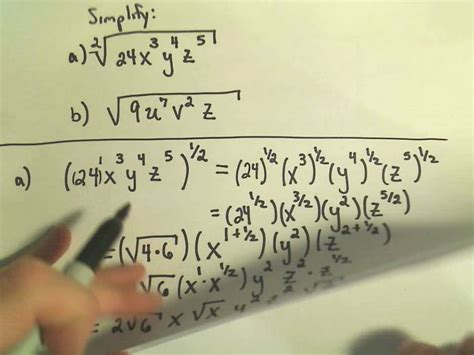 Simplify:
a) ²√(24x³y⁴z⁵)
b) √(9u⁷v²z)
a) ((24)¹x³y⁴z⁵)^(1/2) = (24)^(1/2)(x³)^(1/2)(y⁴)^(1/2)(z⁵)^(1/2)
= (24^(1/2))(x^(3/2))(y²)(z^(5/2))
= (√(4·6))(x^(1+1/2))(y²)(z^(2+1/2))
√6(x¹·x^(1/2))y² z²·z^(1/2)
= 2√6 x√x